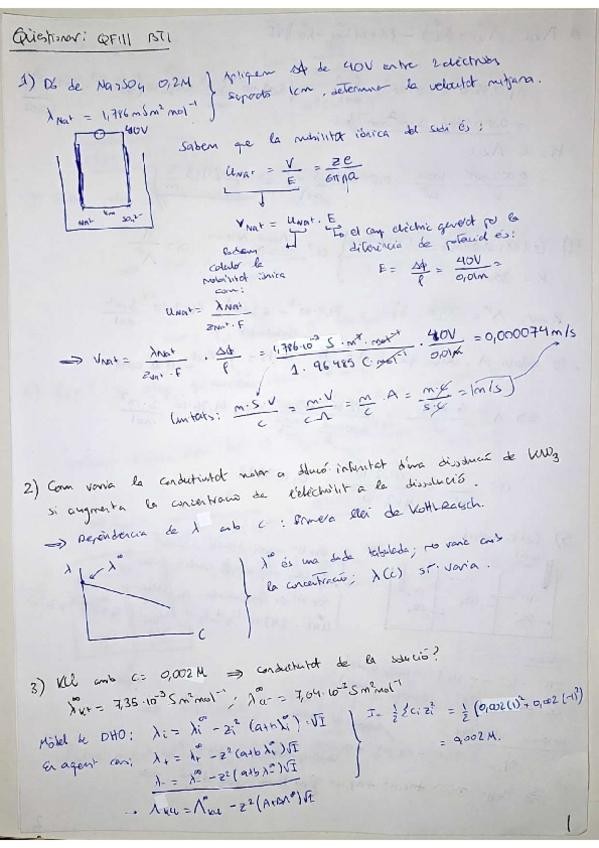 Qüestionari: QFIII BT1
1) D6 de Na2SO4 0,2M } Apliquem Δφ de 40V entre 2 elèctrodes
λNa+ = 1,786 mS m² mol⁻¹ } separats 1cm, determinar la velocitat mitjana.
40V
Na+ 1cm SO4²⁻
Sabem que la mobilitat iònica del sodi és:
uNa+ = V/E = ze/6πηa
VNa+ = uNa+ · E
↳ el camp elèctric generat per la
diferència de potencial és:
E = Δφ/l = 40V/0,01m =
calcular la
mobilitat iònica
com:
uNa+ = λNa+ / zNa+ · F
⇒ VNa+ = λNa+ / zNa+ · F · Δφ/l = 1,786·10⁻³ S · m² · mol⁻¹ / 1 · 96485 C · mol⁻¹ · 40V/0,01m = 0,000074 m/s
Unitats: m·S·V/C = m·V/C·Ω = m/C · A = m·C/s·C = (m/s)
2) Com varia la conductivitat molar a dilució infinita d'una dissolució de KNO3
si augmenta la concentració de l'electròlit a la dissolució.
⇒ Dependència de λ amb c : Primera llei de Kohlrausch.
λ λ∞
C
λ∞ és una dada tabulada; no varia amb
la concentració; λ(c) sí varia.
3) KCl amb c = 0,002M ⇒ conductivitat de la solució?
λ∞K+ = 7,35·10⁻³ S m² mol⁻¹ ; λ∞Cl⁻ = 7,04·10⁻³ S m² mol⁻¹
Model de DHO: λi = λi∞ - zi² (a+bλi∞)·√I
λ+ = λ+∞ - z²(a+bλ+∞)√I
λ- = λ-∞ - z²(a+bλ-∞)√I
→ ΛKCl = Λ∞KCl - z²(A+BΛ∞)√I
I = 1/2 Σ ci zi² = 1/2 (0,002(1)² + 0,002(-1)²)
= 0,002M.
1